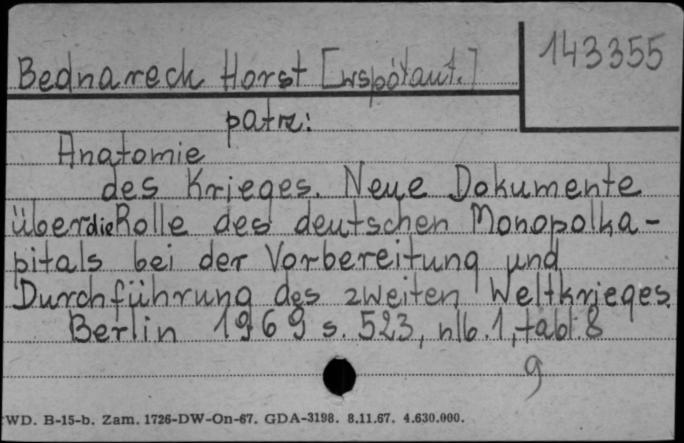 143355
Bednareck Horst [współaut.]
patrz:
Anatomie
des Krieges. Neue Dokumente
über die Rolle des deutschen Monopolka-
pitals bei der Vorbereitung und
Durchführung des zweiten Weltkrieges.
Berlin 1969 s. 523, nlb. 1, tabl. 8
9
WD. B-15-b. Zam. 1726-DW-On-67. GDA-3198. 8.11.67. 4.630.000.